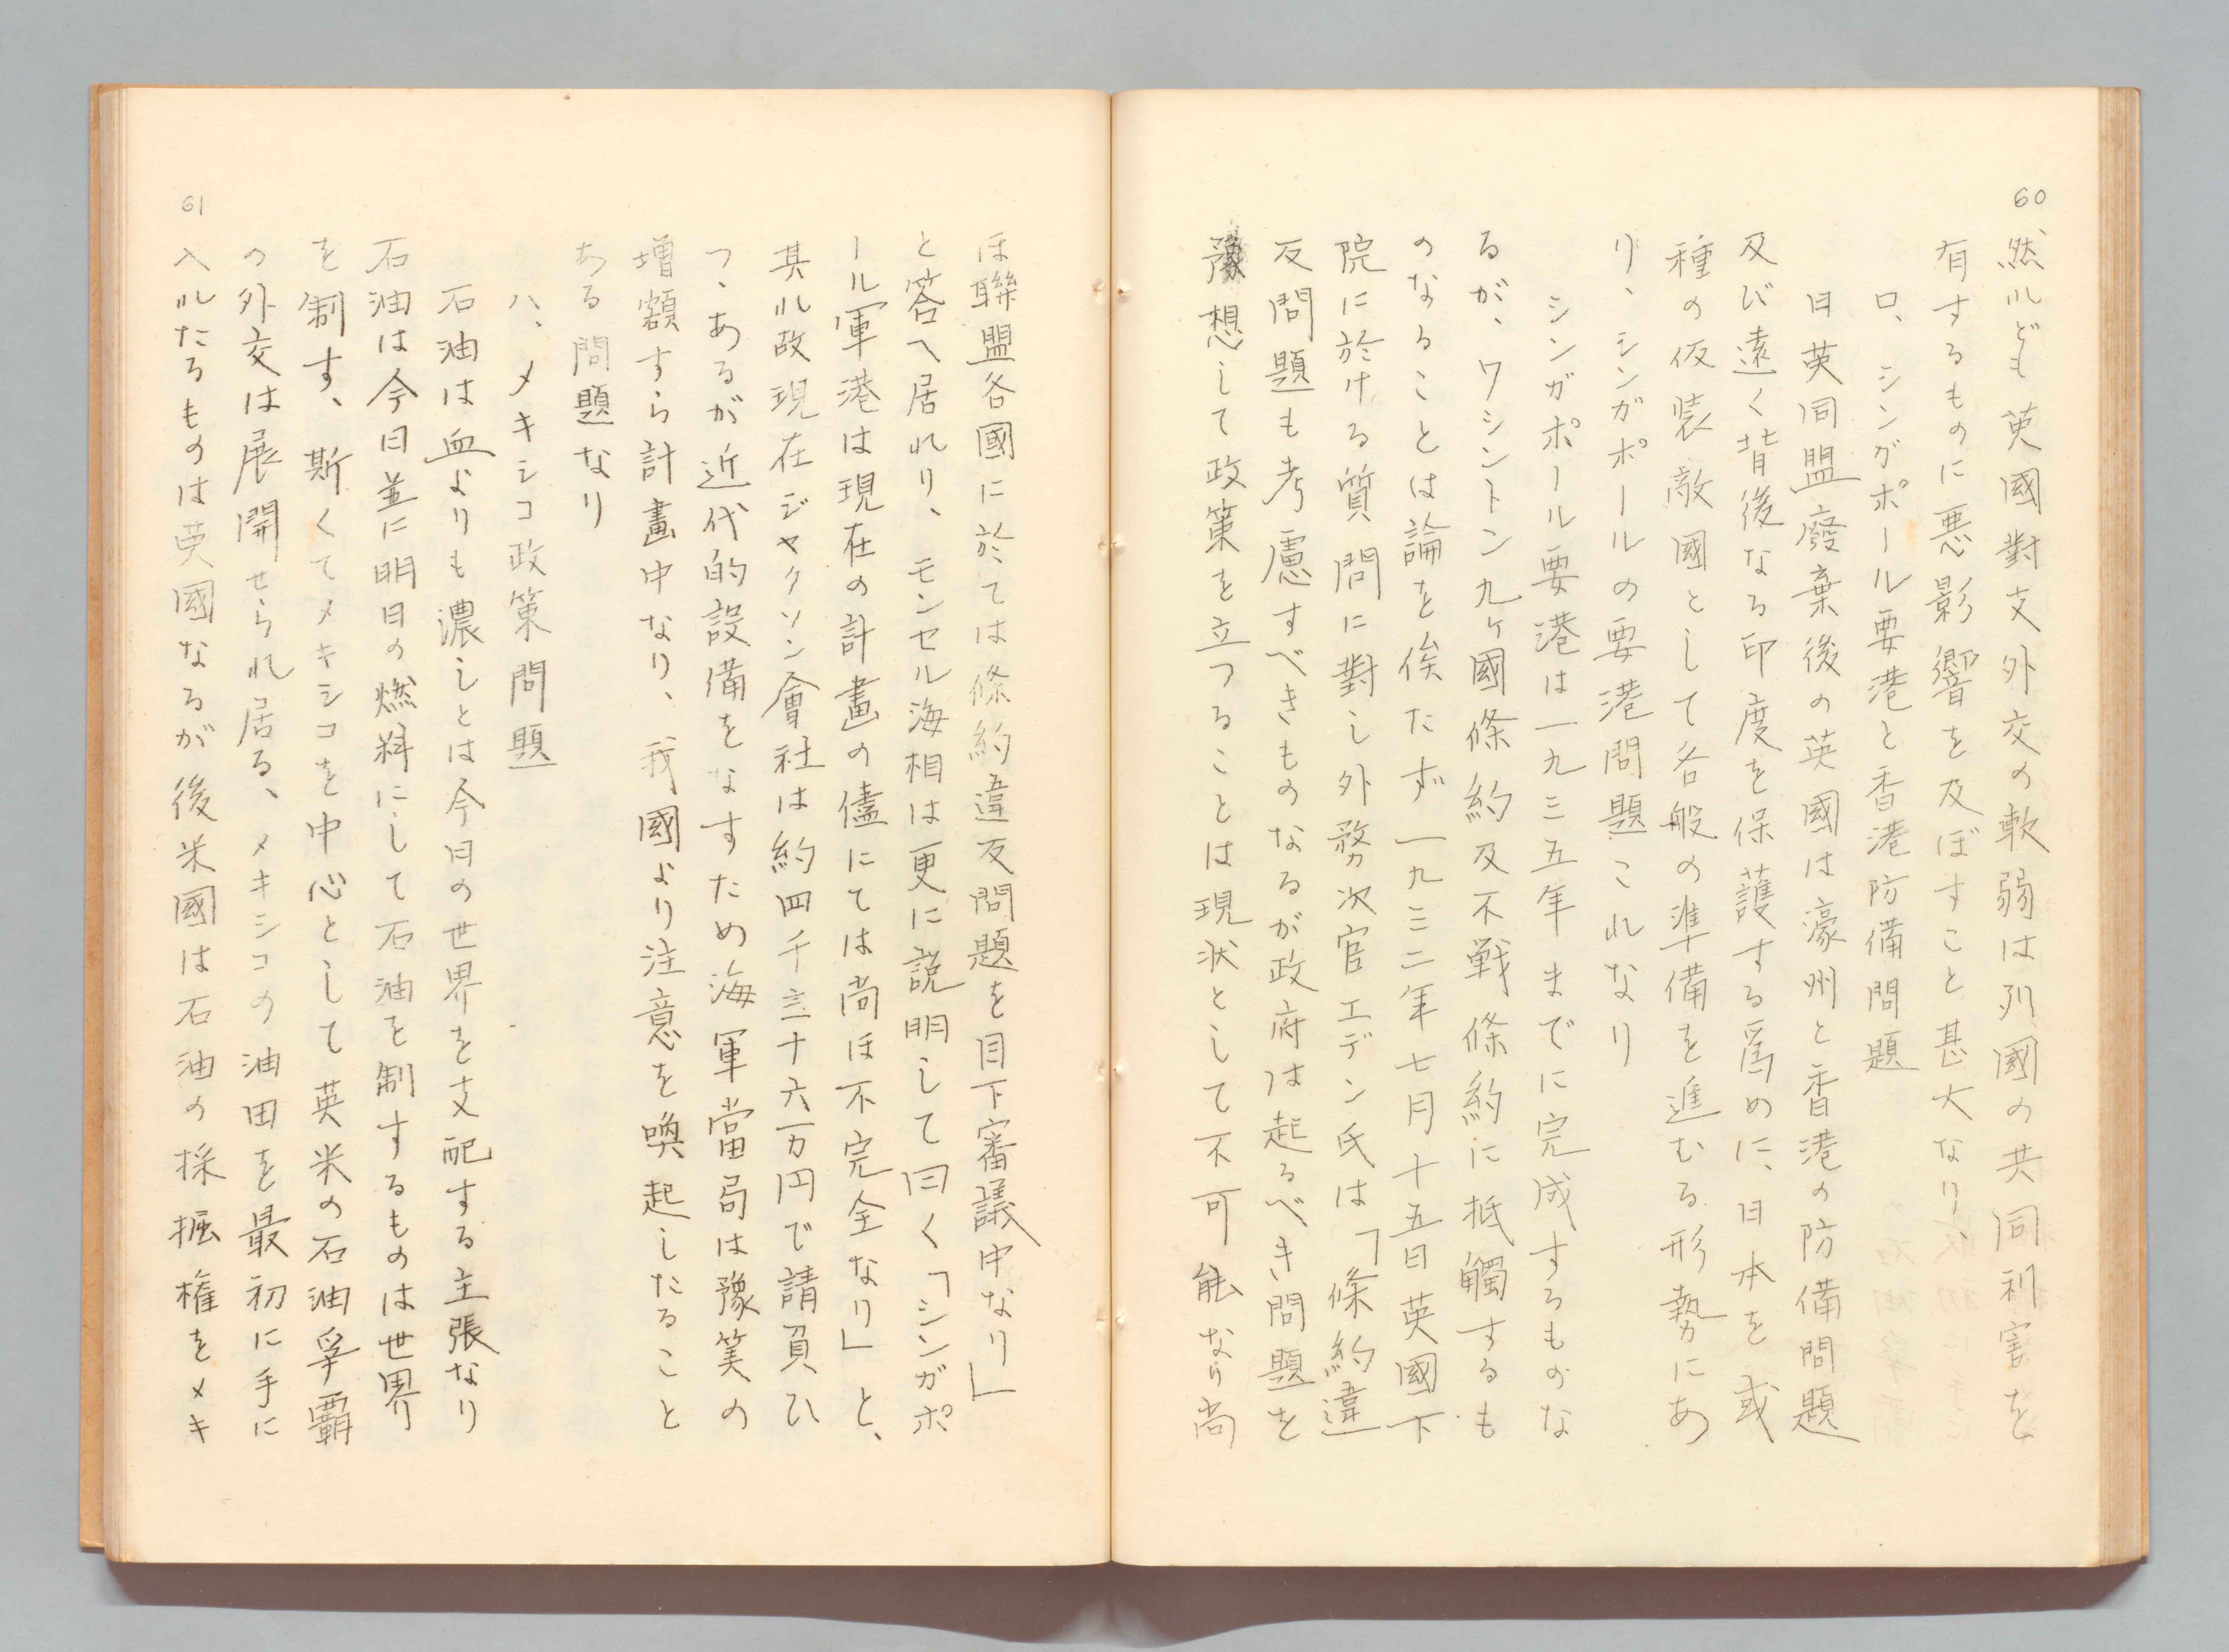 60
然ルども英國對支外交の軟弱は列國の共同利害を
有するものに悪影響を及ぼすこと甚大なり、
ロ、シンガポール要港と香港防備問題
日英同盟廢棄後の英國は濠州と香港の防備問題
及び遠く背後なる印度を保護する爲めに、日本を或
種の仮装敵國として各般の準備を進むる形勢にあ
り、シンガポールの要港問題これなり
シンガポール要港は一九三五年までに完成するものな
るが、ワシントン九ヶ國條約及不戦條約に抵觸するも
のなることは論を俟たず一九三二年七月十五日英國下
院に於ける質問に對し外務次官エデン氏は「條約違
反問題も考慮すべきものなるが政府は起るべき問題を
豫想して政策を立つることは現状として不可能なり尚
ほ聯盟各國に於ては條約違反問題を目下審議中なり」
と答へ居れり、モンセル海相は更に説明して曰く「シンガポ
ール軍港は現在の計畫の儘にては尚ほ不完全なり」と、
其ル故現在ジャクソン會社は約四千三十六万円で請負ひ
つゝあるが近代的設備をなすため海軍當局は豫算の
増額すら計畫中なり、我國より注意を喚起したること
ある問題なり
ハ、メキシコ政策問題
石油は血よりも濃しとは今日の世界を支配する主張なり
石油は今日並に明日の燃料にして石油を制するものは世界
を制す、斯くてメキシコを中心として英米の石油爭覇
の外交は展開せられ居る、メキシコの油田を最初に手に
入ルたるものは英國なるが後米國は石油の採掘権をメキ
61